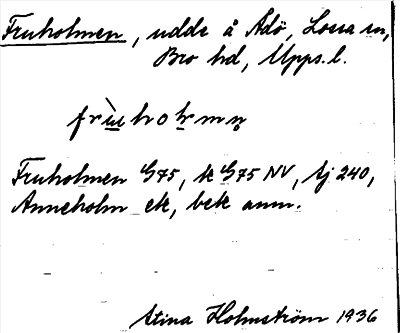 Fruholmen, udde å Ådö, Lossa sn,
Bro hd, Upps. l.
frùuholmn̥
Fruholmen G75, tr G75 NV, tj 240,
Anneholm ek, bek anm.
Stina Holmström 1936